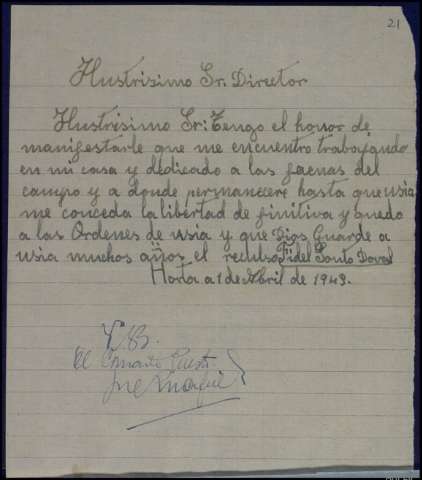 21
Ilustrisimo Sr. Director
Ilustrisimo Sr: Tengo el honor de
manifestarle que me encuentro trabajando
en mi casa y dedicado a las faenas del
campo y a donde permanecere hasta que usia
me conceda la libertad de finitiva y quedo
a las Ordenes de usia y que Dios Guarde a
usia muchos años el recluso Fidel Santo
Horta a 1 de Abril de 1943.
Vº Bº
El Comante Puesto